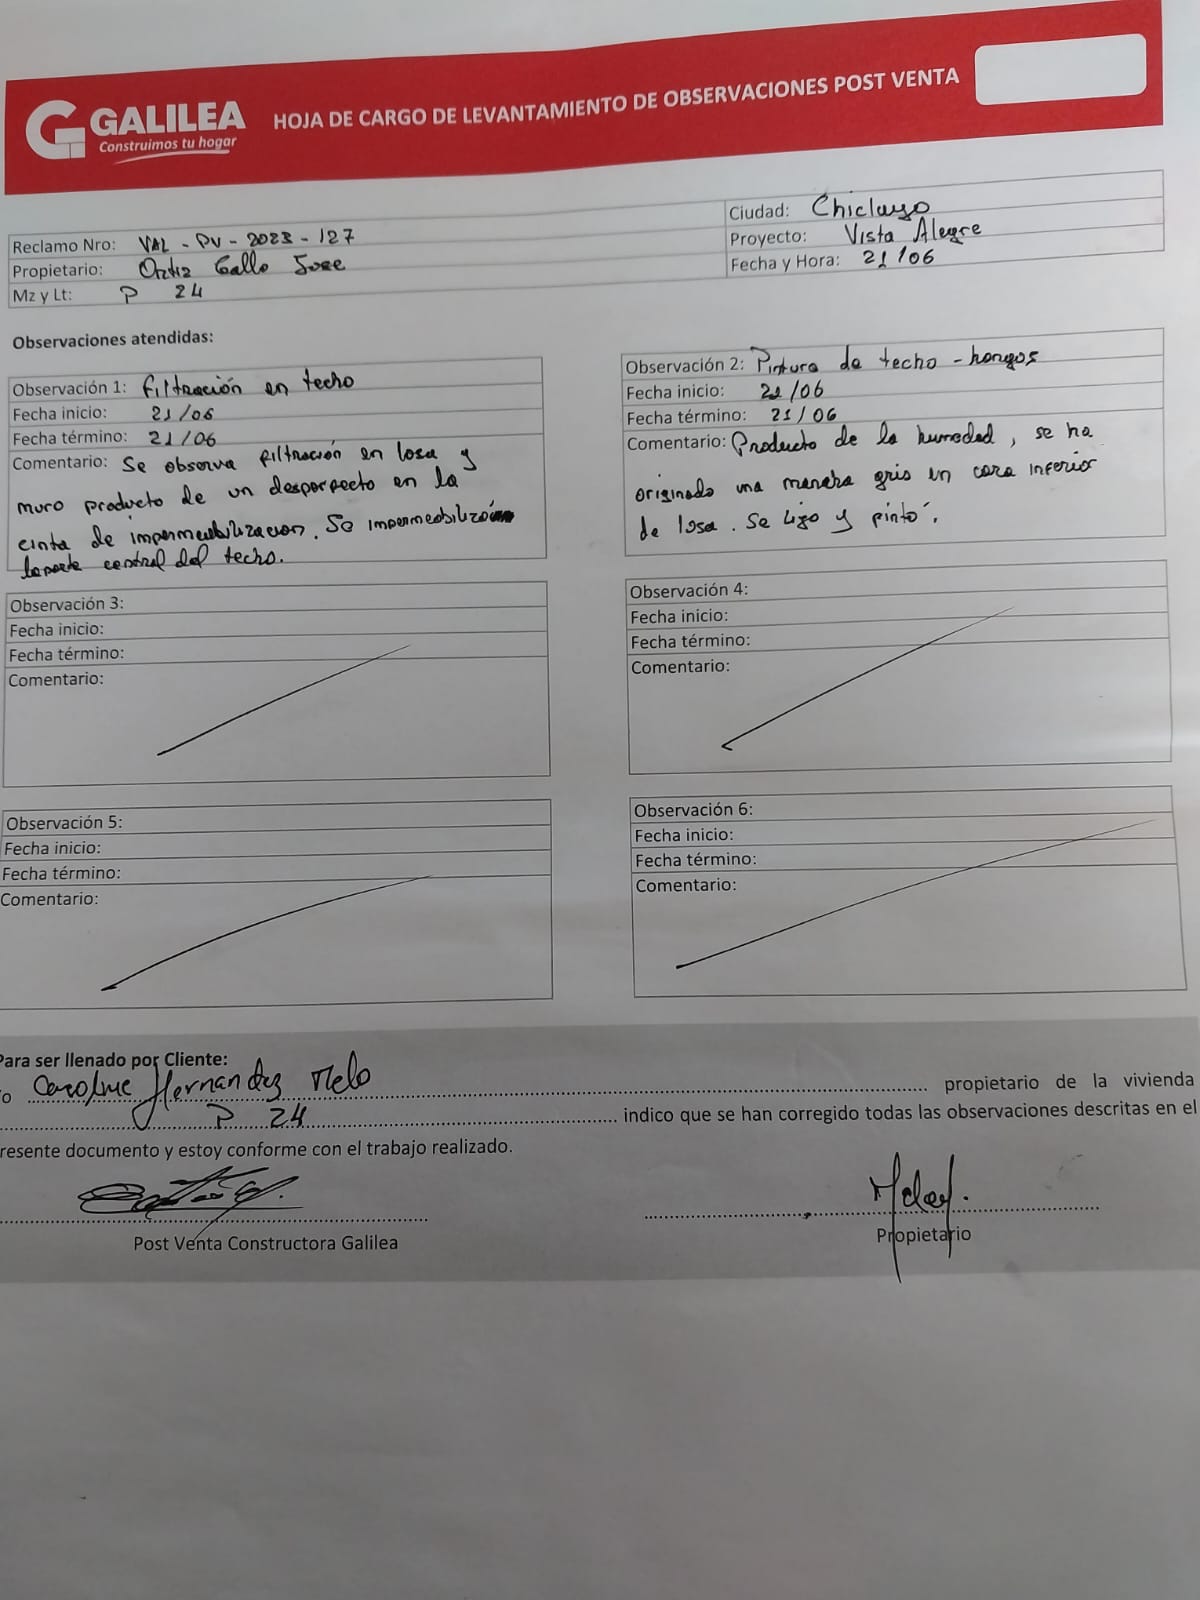 GALILEA
Construimos tu hogar
HOJA DE CARGO DE LEVANTAMIENTO DE OBSERVACIONES POST VENTA
Reclamo Nro: VAL - PV - 2023 - 127
Propietario: Ortiz Gallo Jose
Mz y Lt: P 24
Ciudad: Chiclayo
Proyecto: Vista Alegre
Fecha y Hora: 21/06
Observaciones atendidas:
Observación 1: filtración en techo
Fecha inicio: 21/06
Fecha término: 21/06
Comentario: Se observa filtración en losa y
muro producto de un desperfecto en la
cinta de impermeabilizacion. Se impermeabilizó
la parte central del techo.
Observación 2: Pintura de techo - hongos
Fecha inicio: 21/06
Fecha término: 21/06
Comentario: Producto de la humedad, se ha
originado una mancha gris en cara inferior
de losa. Se lijo y pintó.
Observación 3:
Fecha inicio:
Fecha término:
Comentario:
Observación 4:
Fecha inicio:
Fecha término:
Comentario:
Observación 5:
Fecha inicio:
Fecha término:
Comentario:
Observación 6:
Fecha inicio:
Fecha término:
Comentario:
Para ser llenado por Cliente:
o Caroline Hernandez Melo propietario de la vivienda
P 24 indico que se han corregido todas las observaciones descritas en el
resente documento y estoy conforme con el trabajo realizado.
Post Venta Constructora Galilea
Propietario